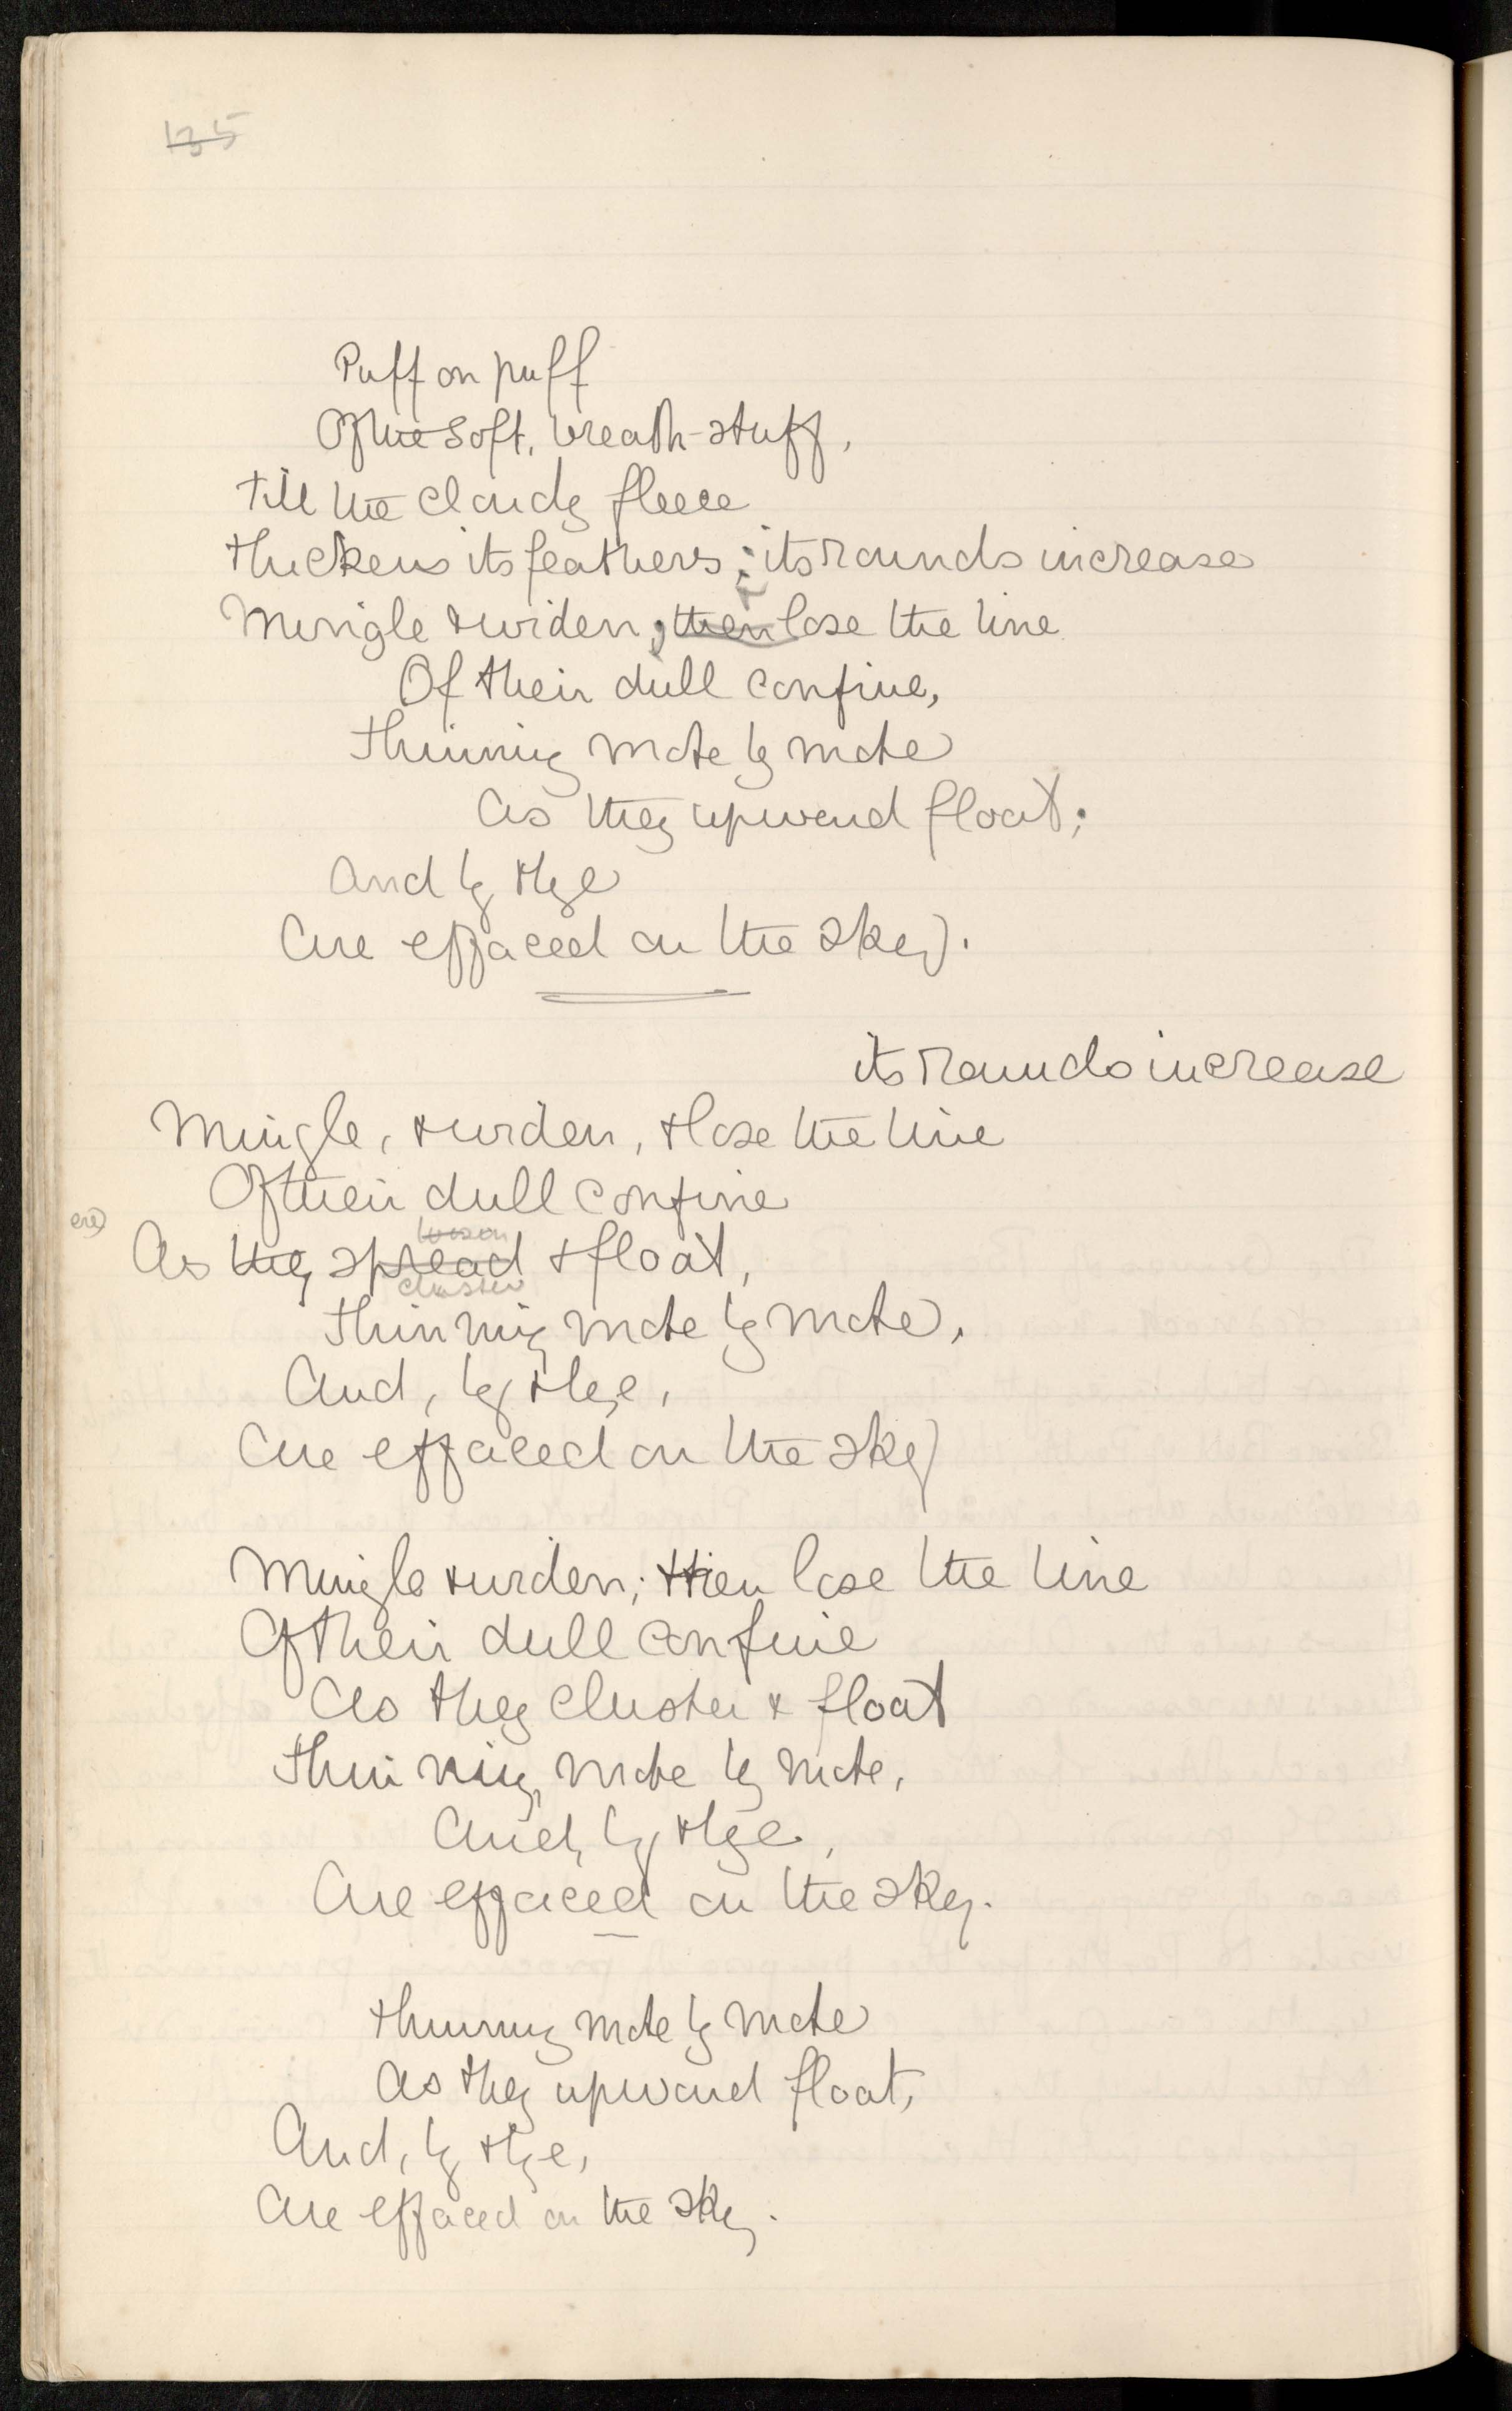 135
Puff on puff
Of the soft, breath-stuff,
Till the cloudy fleece
Thickens its feathers; its rounds increase
Mingle & widen, then lose the line
Of their dull confine,
Thinning mote by mote
As they upward float;
And by & bye
Are effaced on the sky.
its rounds increase
Mingle, & widen, & lose the line
Of their dull confine
ere
As they spread & float,
cluster
Thinning mote by mote,
And, by & bye,
Are effaced on the sky
Mingle & widen; then lose the line
Of their dull confine
As they cluster & float
Thinning, mote by mote,
And, by & bye,
Are effaced on the sky.
Thinning mote by mote
As they upward float,
And, by & bye,
Are effaced on the sky.